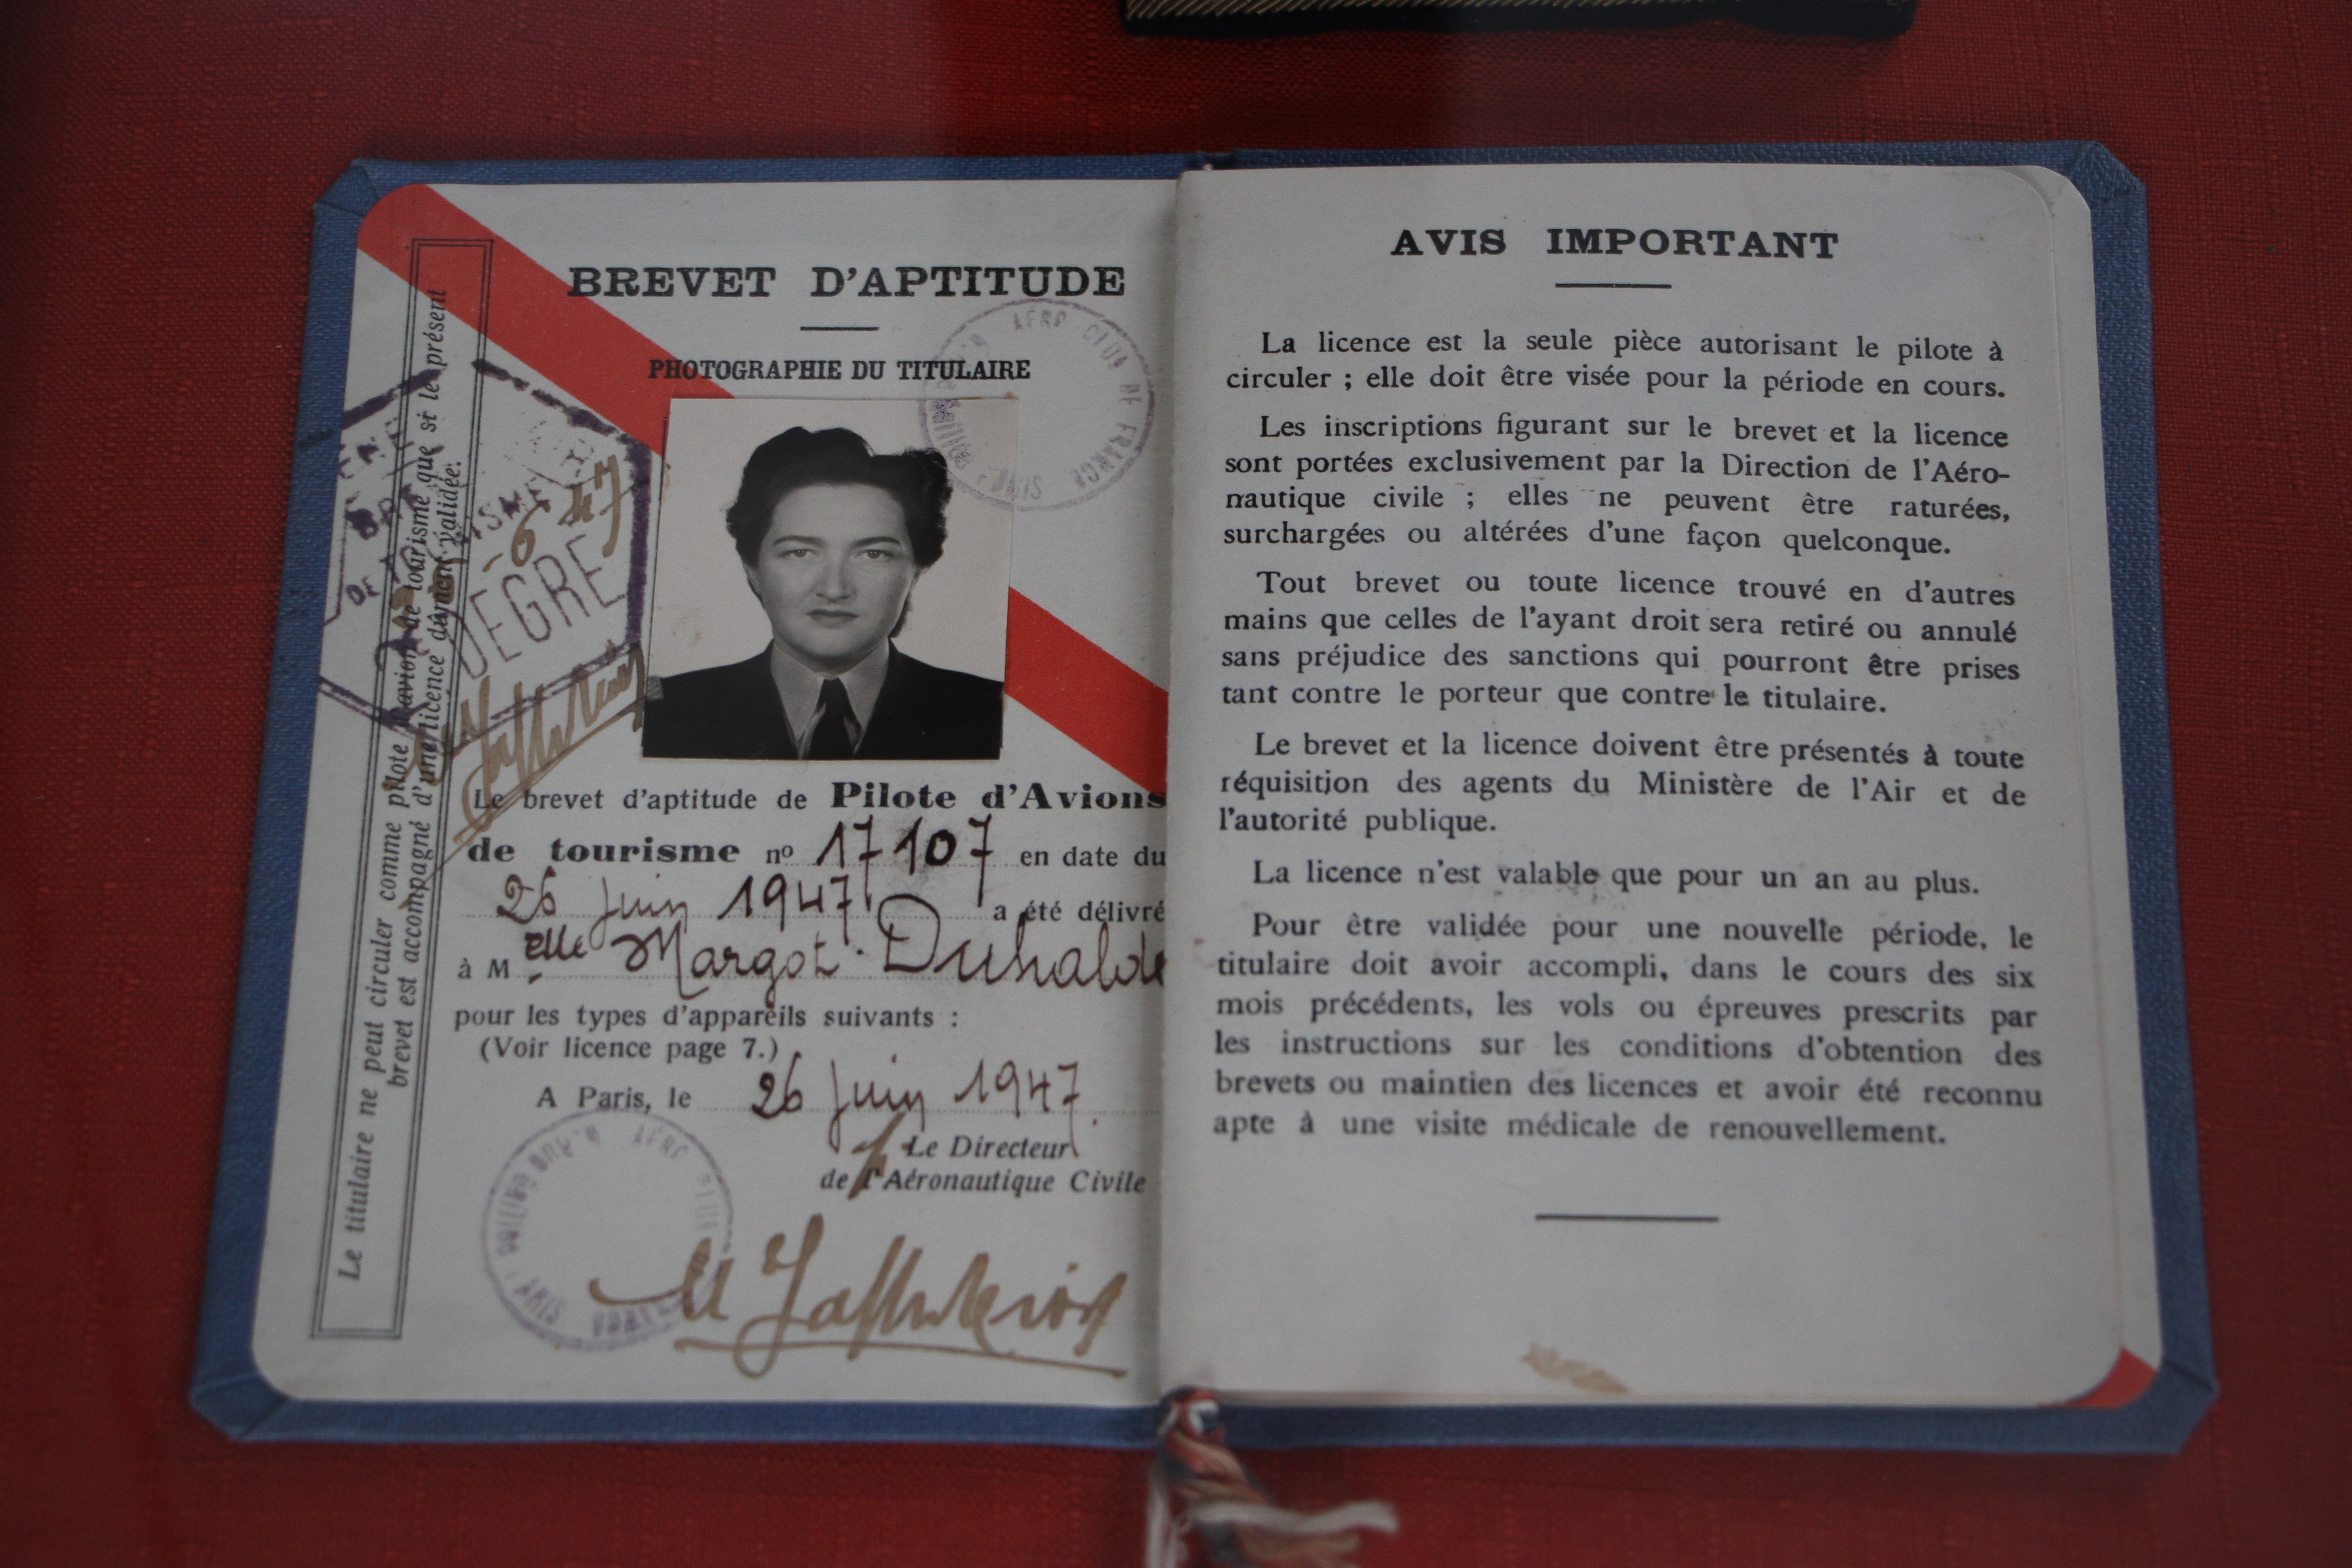 BREVET D'APTITUDE
PHOTOGRAPHIE DU TITULAIRE
AÉRO CLUB DE FRANCE
PARIS
DE
-6 47
DEGRE
Le titulaire ne peut circuler comme pilote d'avion de tourisme que si le présent
brevet est accompagné d'une licence dûment validée.
Le brevet d'aptitude de Pilote d'Avions
de tourisme nº 17107 en date du
26 Juin 1947 a été délivré
à M elle Margot Duhalde
pour les types d'appareils suivants :
(Voir licence page 7.)
A Paris, le 26 Juin 1947.
Le Directeur
de l'Aéronautique Civile
AVIS IMPORTANT
La licence est la seule pièce autorisant le pilote à
circuler ; elle doit être visée pour la période en cours.
Les inscriptions figurant sur le brevet et la licence
sont portées exclusivement par la Direction de l'Aéro-
nautique civile ; elles ne peuvent être raturées,
surchargées ou altérées d'une façon quelconque.
Tout brevet ou toute licence trouvé en d'autres
mains que celles de l'ayant droit sera retiré ou annulé
sans préjudice des sanctions qui pourront être prises
tant contre le porteur que contre le titulaire.
Le brevet et la licence doivent être présentés à toute
réquisition des agents du Ministère de l'Air et de
l'autorité publique.
La licence n'est valable que pour un an au plus.
Pour être validée pour une nouvelle période, le
titulaire doit avoir accompli, dans le cours des six
mois précédents, les vols ou épreuves prescrits par
les instructions sur les conditions d'obtention des
brevets ou maintien des licences et avoir été reconnu
apte à une visite médicale de renouvellement.